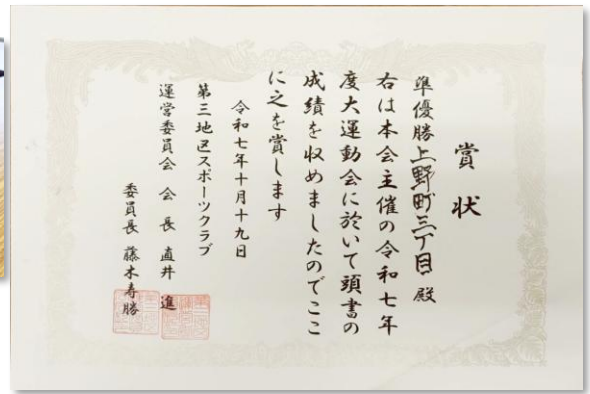 賞状
準優勝上野町三丁目殿
右は本会主催の令和七年
度大運動会に於いて頭書の
成績を収めましたのでここ
に之を賞します
令和七年十月十九日
第三地区スポーツクラブ
運営委員会 会長 直井 進
委員長 藤木寿勝